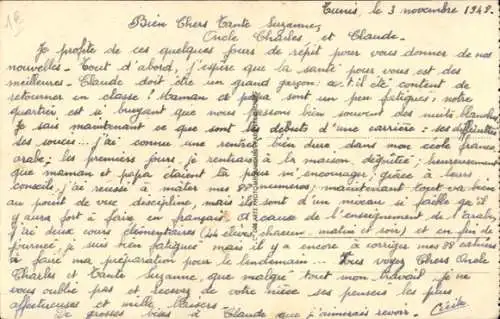 1€
Tunis, le 3 novembre 1948.
Bien Chers Tante Suzanne,
Oncle Charles et Claude.
Je profite de ces quelques jours de répit pour vous donner de nos
nouvelles. Tout d'abord, j'espère que la santé pour vous est des
meilleures. Claude doit être un grand garçon : a-t-il été content de
retourner en classe ? Maman et papa sont un peu fatigués : notre
quartier est si bruyant que nous passons bien souvent des nuits blanches
Je sais maintenant ce que sont les débuts d'une carrière : ses difficultés
ses soucis... j'ai connu une rentrée bien dure dans mon école franco
arabe ; les premiers jours, je rentrais à la maison, dégoûtée ; heureusement
que maman et papa étaient là pour m'encourager ; grâce à leurs
conseils, j'ai réussi à mater mes 88 numéros ; maintenant tout va bien
au point de vue discipline, mais ils sont d'un niveau si faible qu'il
y aura fort à faire en français à cause de l'enseignement de l'arabe
j'ai deux cours élémentaires (44 élèves chacun, matin et soir) et en fin de
journée, je suis bien fatiguée mais il y a encore à corriger mes 88 cahiers
à faire ma préparation pour le lendemain... Vous voyez Chers Oncle
Charles et Tante Suzanne, que malgré tout mon travail je ne
vous oublie pas et recevez de votre nièce ses pensées les plus
affectueuses et mille baisers
De grosses bises à Claude que j'aimerais revoir. Cécile